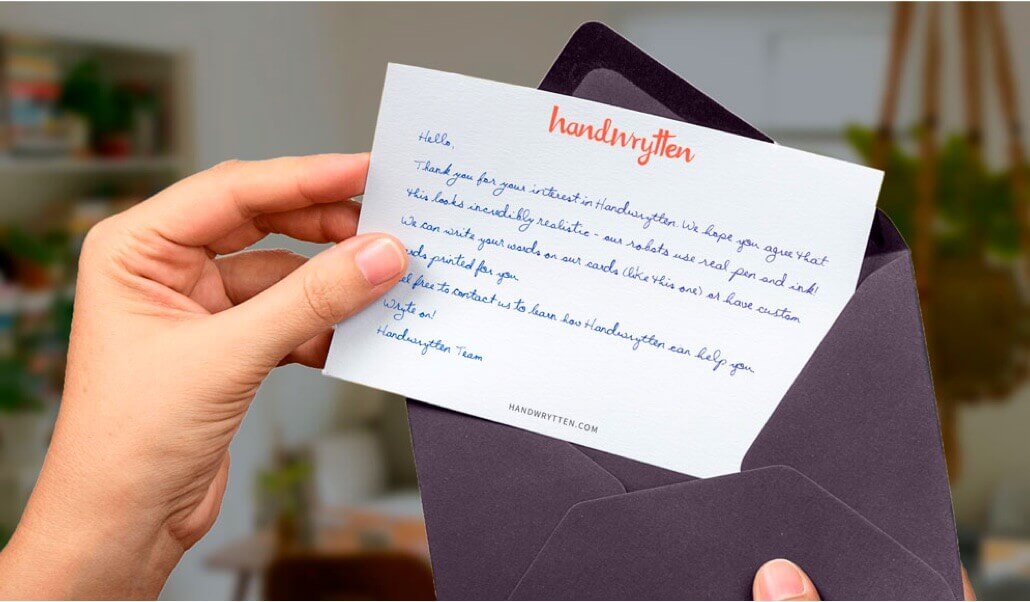 handwrytten
Hello,
Thank you for your interest in Handwrytten. We hope you agree that
this looks incredibly realistic - our robots use real pen and ink!
We can write your words on our cards (like this one) or have custom
printed for you.
free to contact us to learn how Handwrytten can help you.
Wryte on!
Handwrytten Team
HANDWRYTTEN.COM